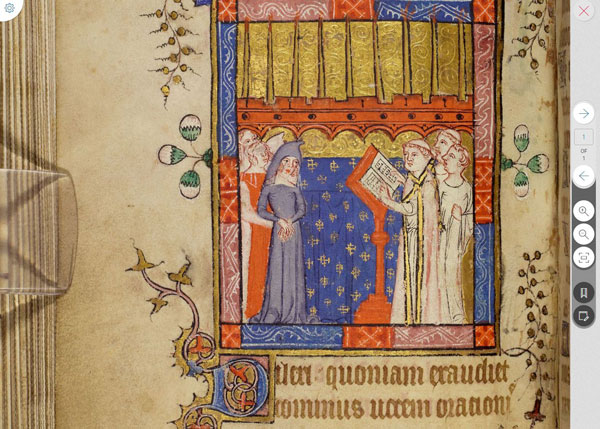 1
OF
1
Dilexi quoniam exaudiet
dominus uocem orationi